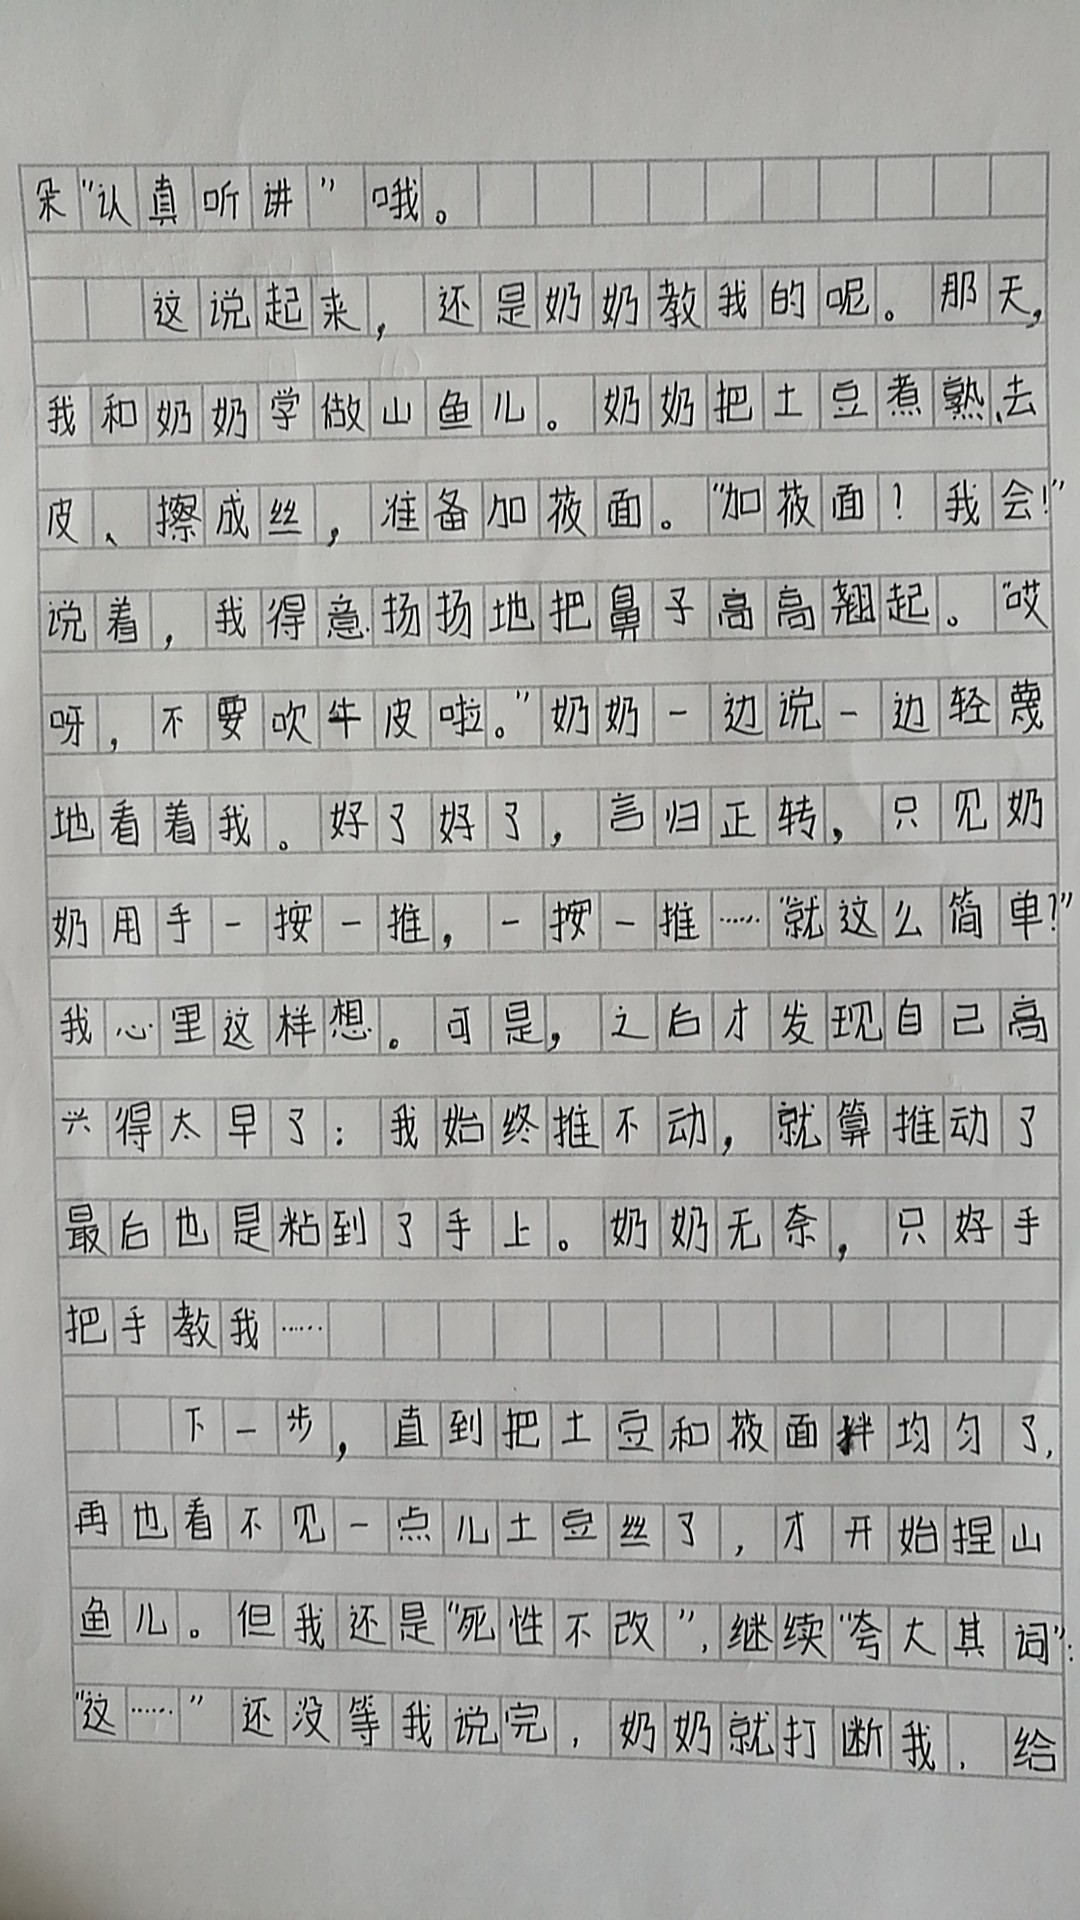 朵“认真听讲”哦。
这说起来，还是奶奶教我的呢。那天，
我和奶奶学做山鱼儿。奶奶把土豆煮熟、去
皮、擦成丝，准备加莜面。“加莜面！我会！”
说着，我得意扬扬地把鼻子高高翘起。“哎
呀，不要吹牛皮啦。”奶奶一边说一边轻蔑
地看着我。好了好了，言归正转，只见奶
奶用手一按一推，一按一推……“就这么简单？”
我心里这样想。可是，之后才发现自己高
兴得太早了：我始终推不动，就算推动了
最后也是粘到了手上。奶奶无奈，只好手
把手教我……
下一步，直到把土豆和莜面拌均匀了，
再也看不见一点儿土豆丝了，才开始捏山
鱼儿。但我还是“死性不改”，继续“夸大其词”：
“这……”还没等我说完，奶奶就打断我，给